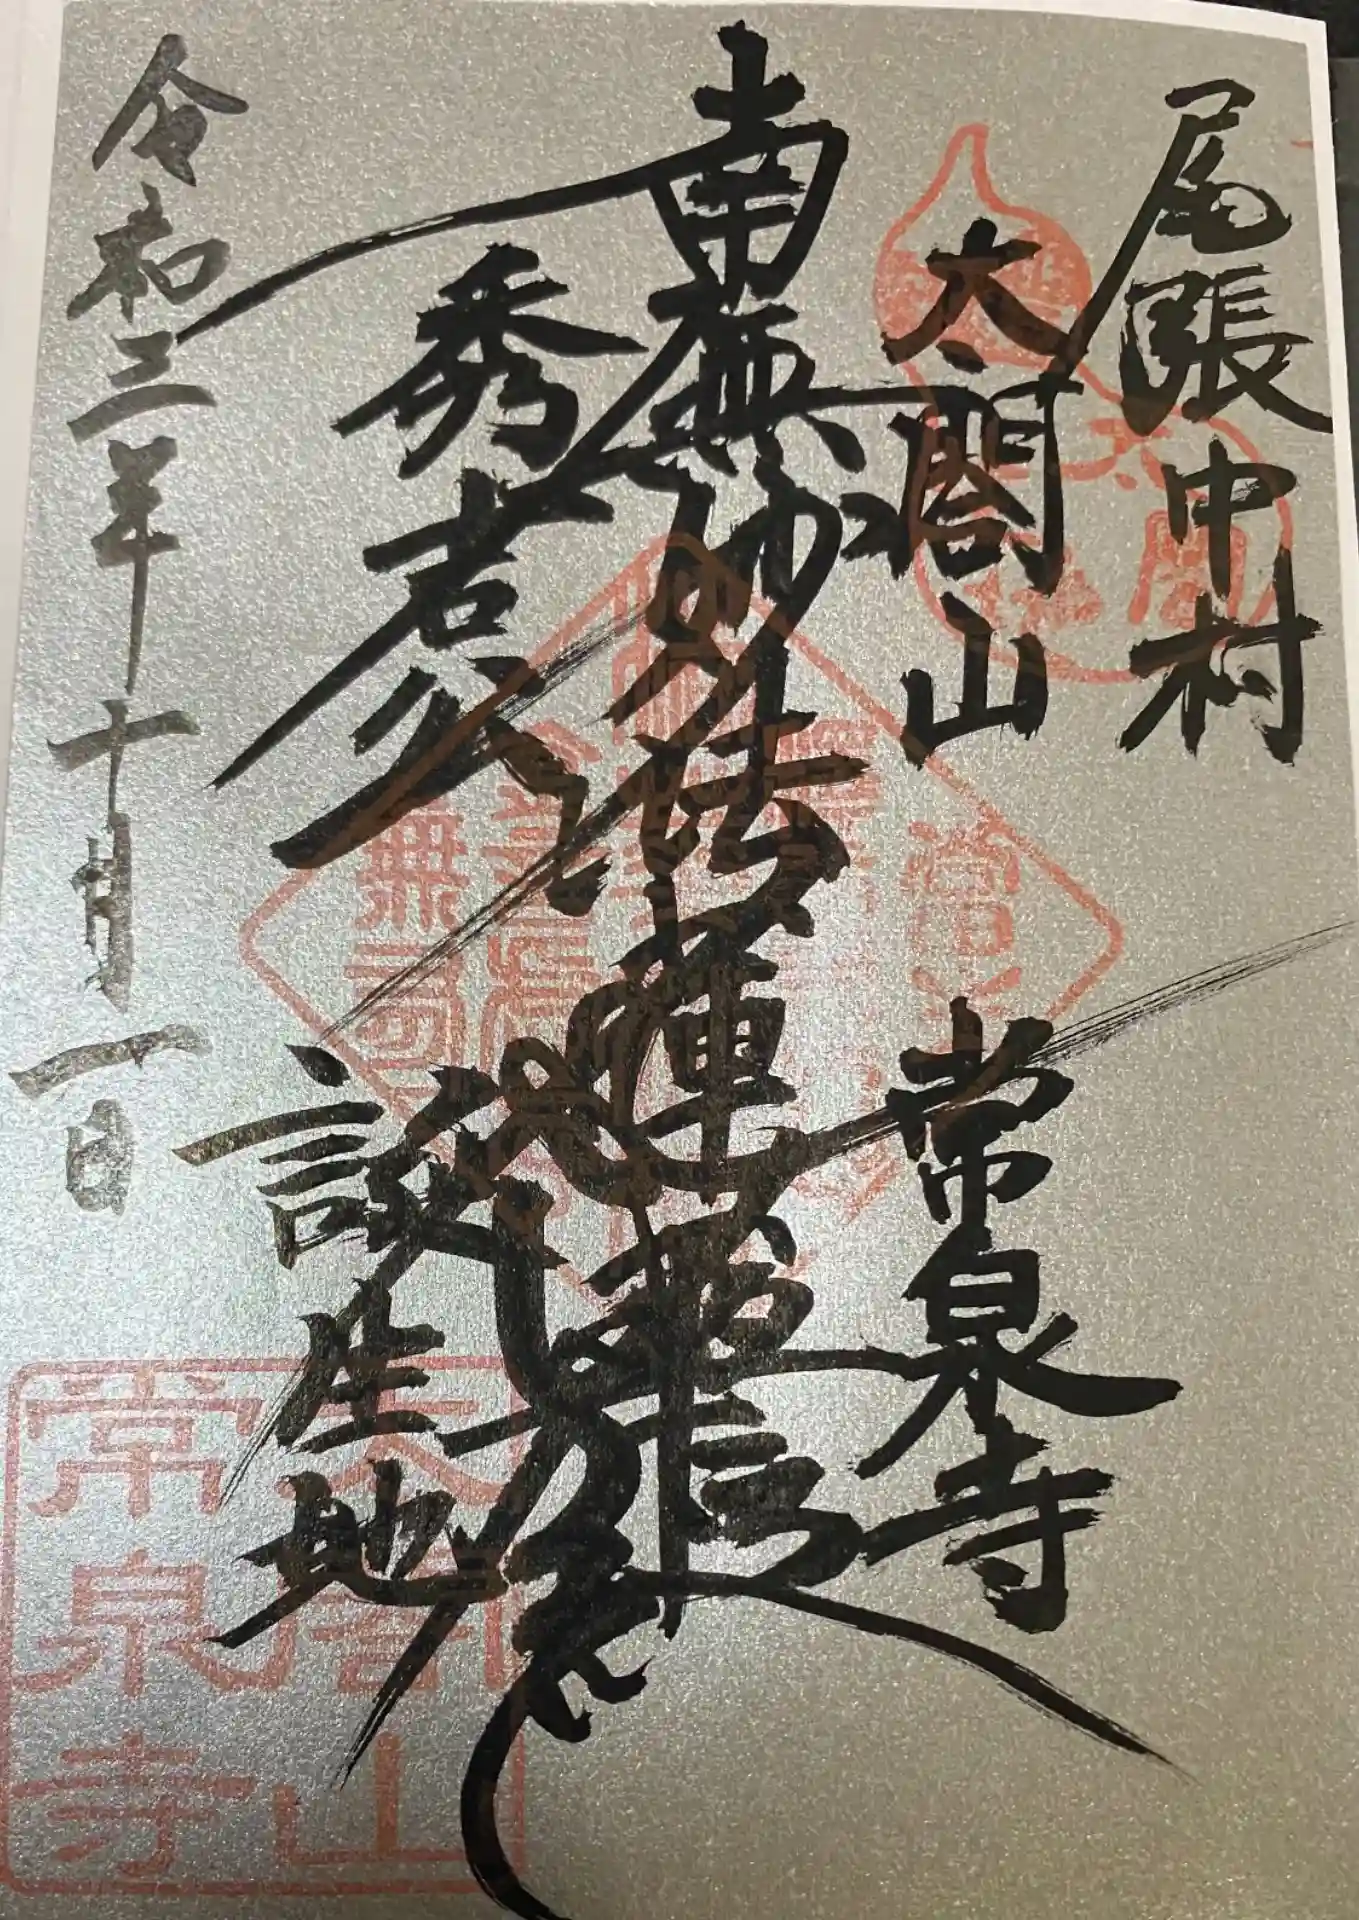 尾張中村
太閤山
常泉寺
南無妙法蓮華経
秀吉公
誕生地
令和三年十月一日
太閤山
常泉寺